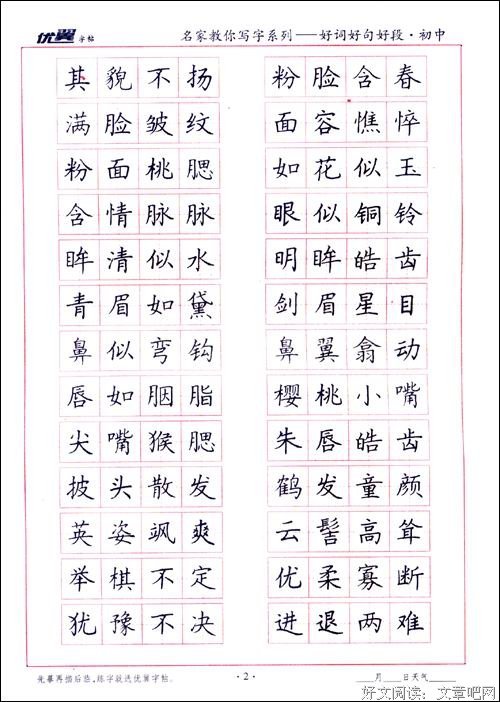 优翼字帖 名家教你写字系列——好词好句好段·初中
其貌不扬 粉脸含春
满脸皱纹 面容憔悴
粉面桃腮 如花似玉
含情脉脉 眼似铜铃
眸清似水 明眸皓齿
青眉如黛 剑眉星目
鼻似弯钩 鼻翼翕动
唇如胭脂 樱桃小嘴
尖嘴猴腮 朱唇皓齿
披头散发 鹤发童颜
英姿飒爽 云髻高耸
举棋不定 优柔寡断
犹豫不决 进退两难
先摹再描后临,练字就选优翼字帖。 ·2· 月 日天气
好文阅读:文章吧网